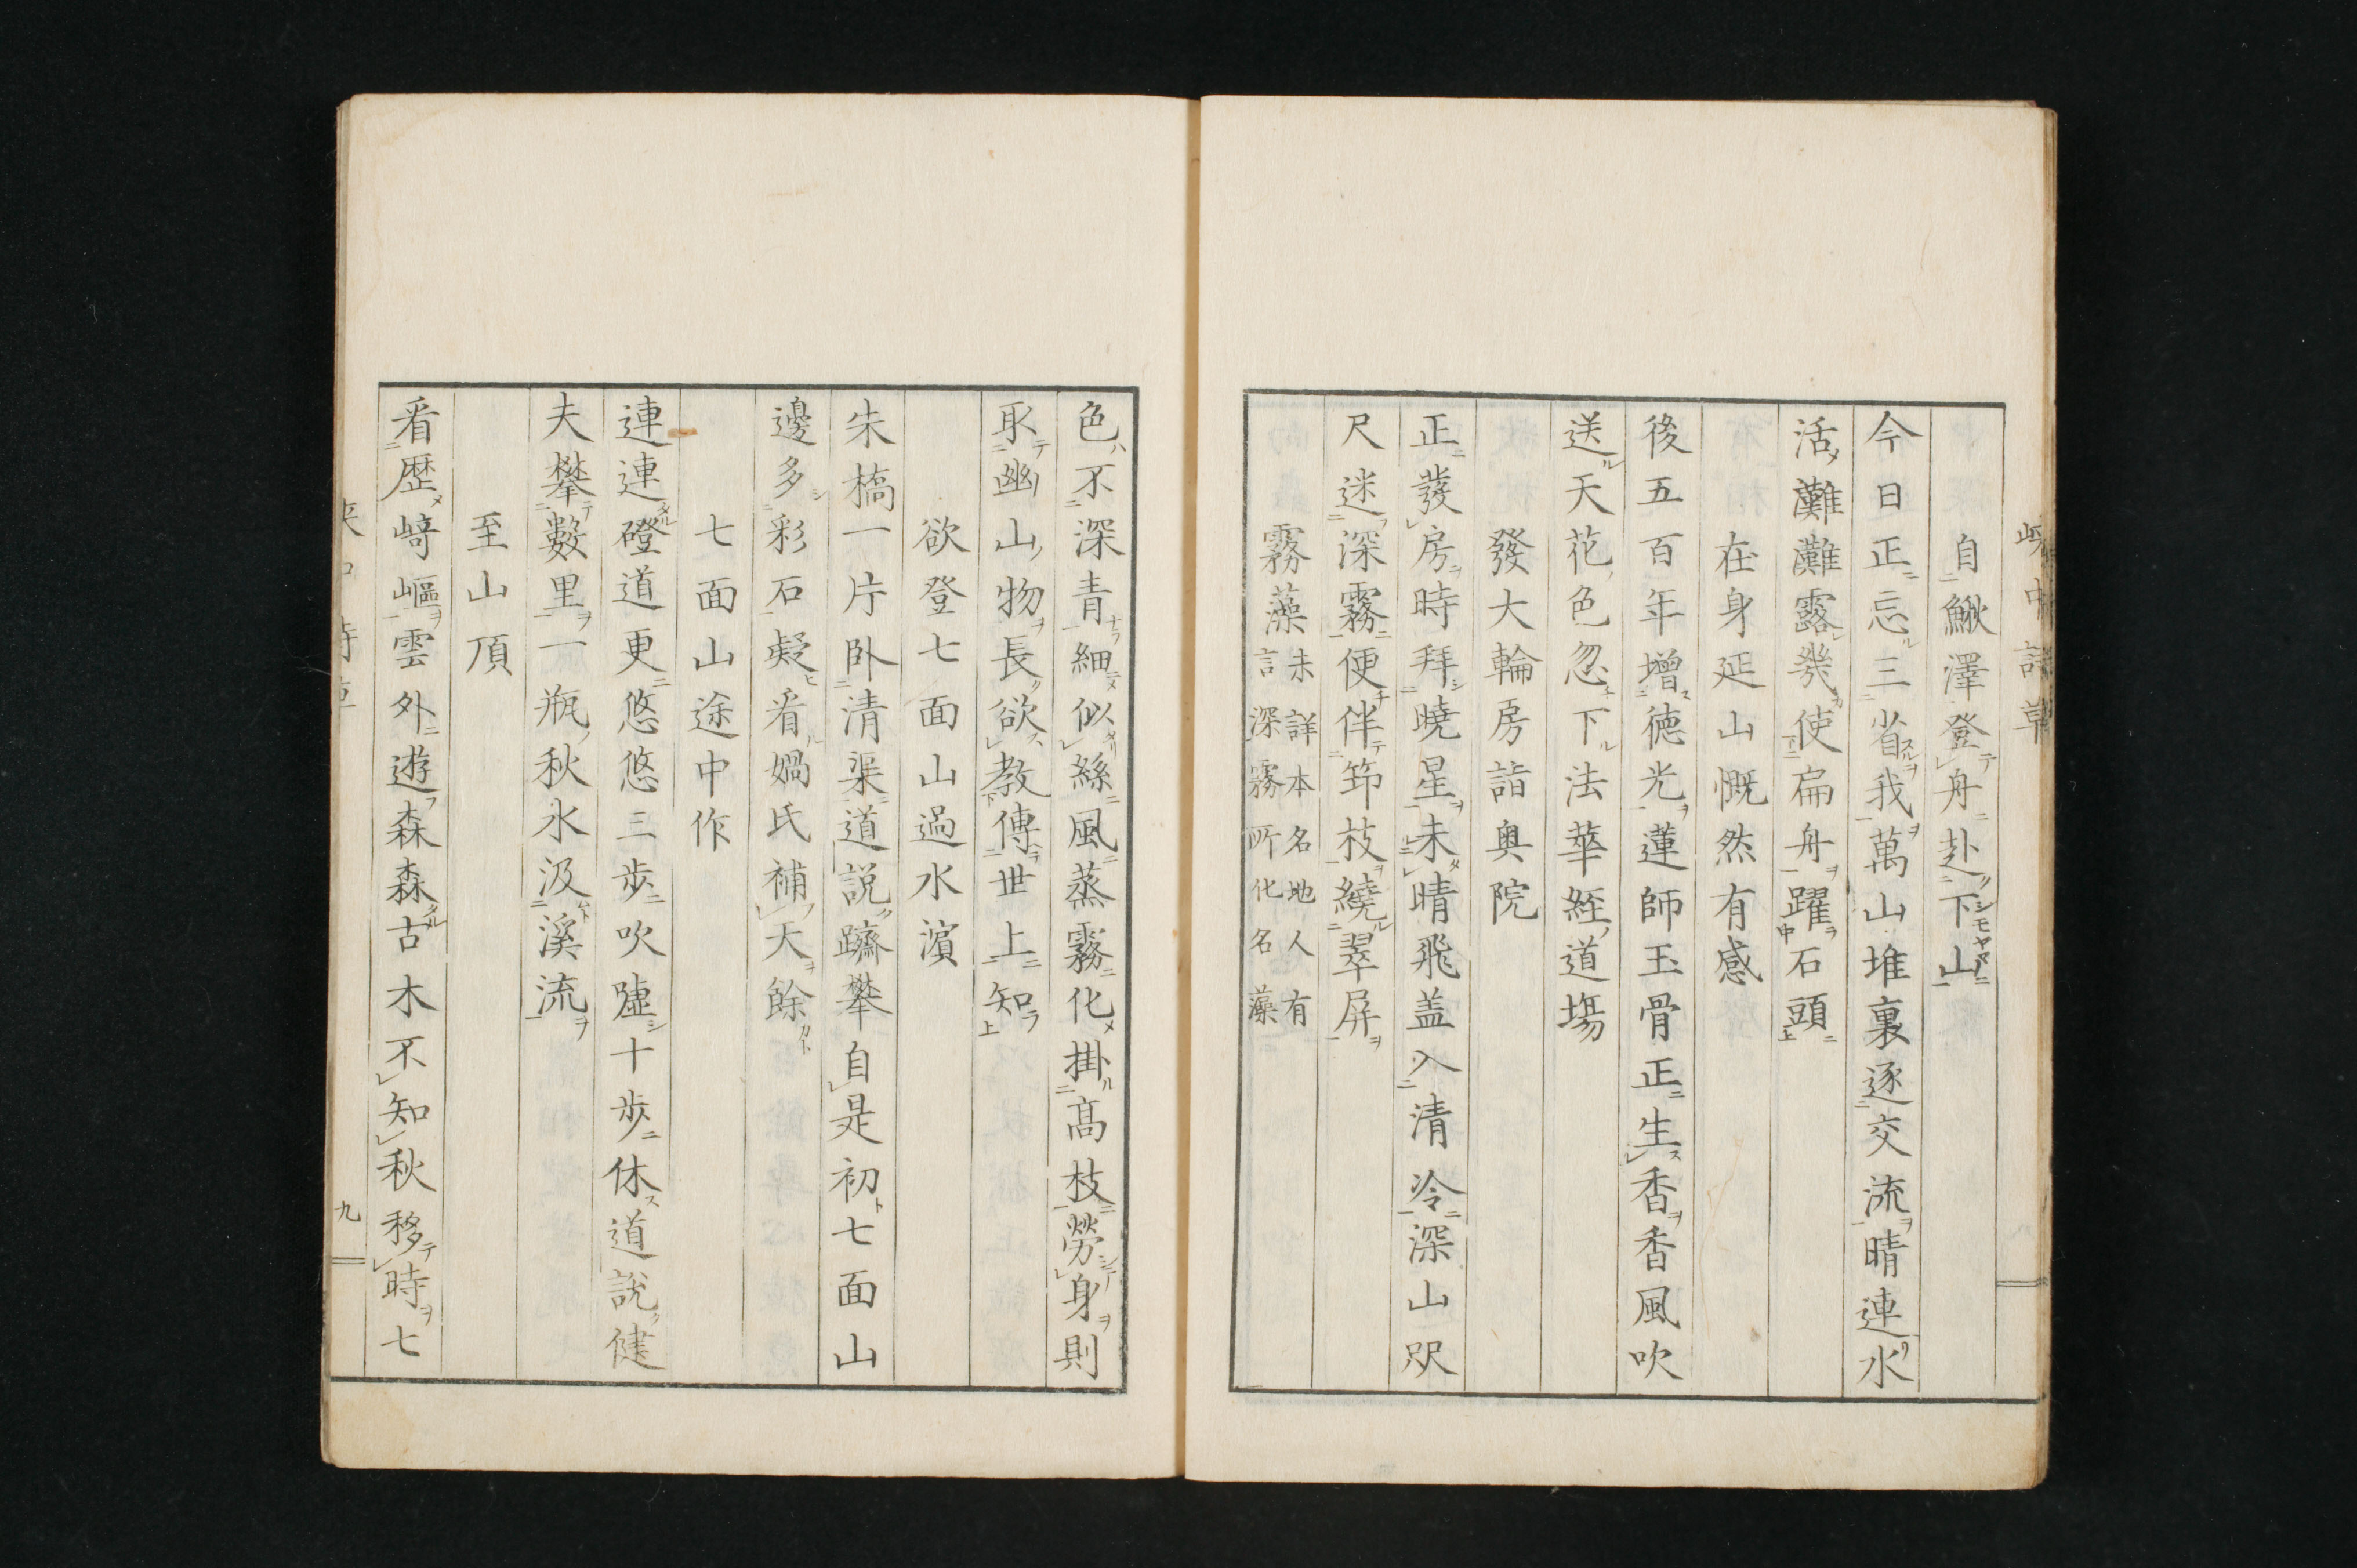 峽中詩草
自鰍澤登舟赴下山
今日正忘三省我萬山堆裏逐交流晴連水
活灘灘露幾使扁舟躍石頭
在身延山慨然有感
後五百年增德光蓮師玉骨正生香香風吹
送天花色忽下法華經道場
發大輪房詣奥院
正發房時拜曉星未晴飛盖入清冷深山咫
尺迷深霧便伴筇枝繞翠屏
霧藻未詳本名地人有言深霧所化名藻
色不深青細似絲風蒸霧化掛高枝勞身則
取幽山物長欲教傳世上知
欲登七面山過水濵
朱橋一片卧清渠道說躋攀自是初七面山
邊多彩石疑看媧氏補天餘
七面山途中作
連連磴道更悠悠三步吹噓十步休道說健
夫攀數里一瓶秋水汲溪流
至山頂
看歷﨑嶇雲外遊森森古木不知秋移時七
九